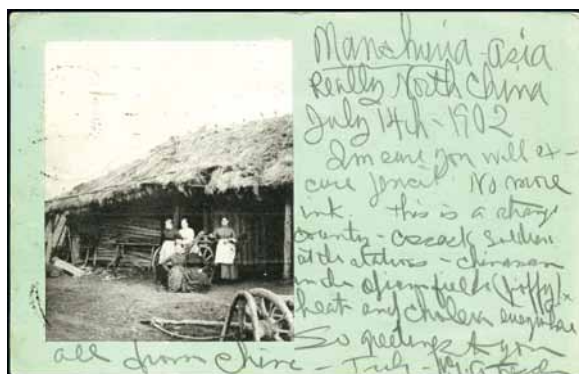 Manchuria-Asia
Really North China
July 14th-1902
I'm sure you will ex-
cuse pencil. No more
ink. this is a strange
country - cossack soldiers
at the stations - chinamen
in the opium fields (poppy)
heat and cholera everywhere
So greetings to you
all from China -